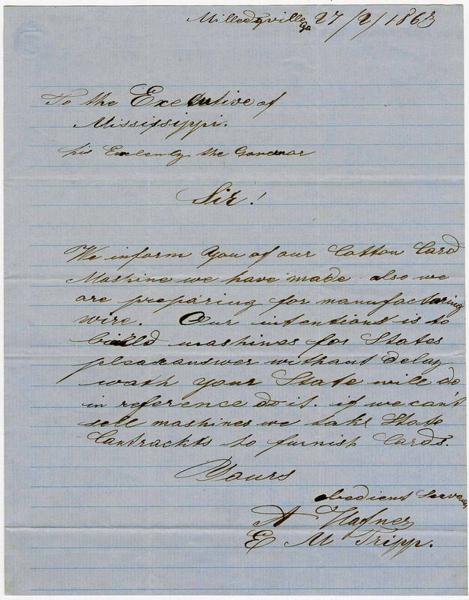 Milledgville Ga 27/2/1863
To the Executive of
Mississippi.
his Exelenty the Governor
Sir!
We inform you of our Cotton Card
Mashine we have made also we
are preparing for manufacturing
wire. Our intentions is to
build mashines for States
pleas answer without delay
wath your State will do
in reference do it. if we can't
sell mashines we take State
Contrackts to furnish Cards.
Yours
obedient Servants
A Hafner
E M Tripp.